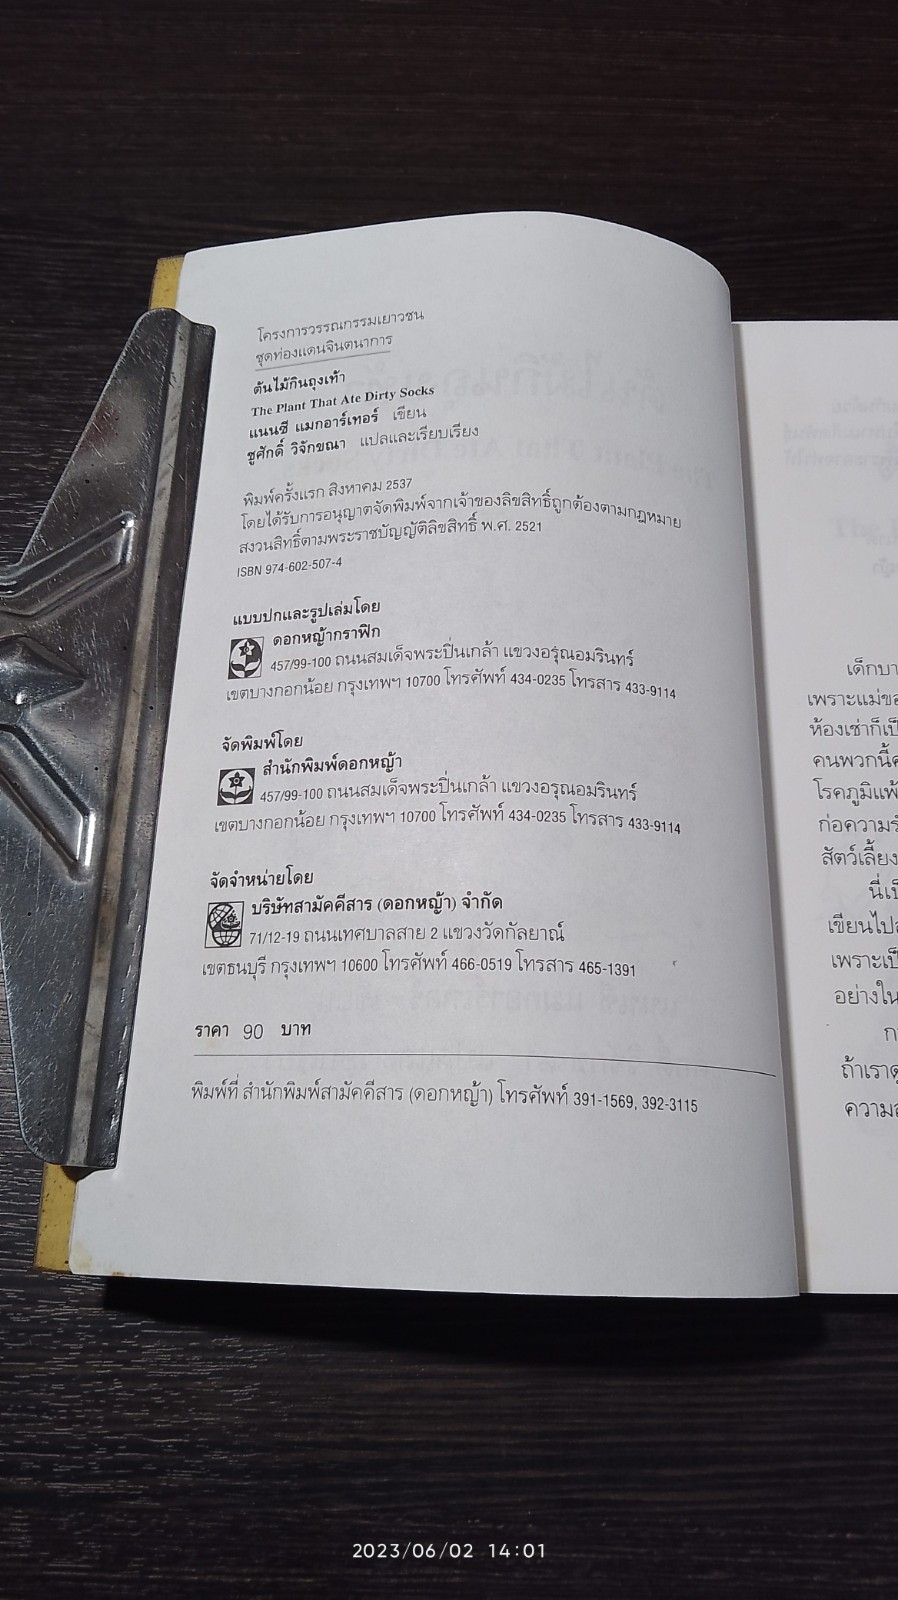 โครงการวรรณกรรมเยาวชน
ชุดท่องแดนจินตนาการ
ต้นไม้กินถุงเท้า
The Plant That Ate Dirty Socks
แนนซี แมกอาร์เทอร์ เขียน
ชูศักดิ์ วิจักขณา แปลและเรียบเรียง
พิมพ์ครั้งแรก สิงหาคม 2537
โดยได้รับการอนุญาตจัดพิมพ์จากเจ้าของลิขสิทธิ์ถูกต้องตามกฎหมาย
สงวนสิทธิ์ตามพระราชบัญญัติลิขสิทธิ์ พ.ศ. 2521
ISBN 974-602-507-4
แบบปกและรูปเล่มโดย
ดอกหญ้ากราฟิก
457/99-100 ถนนสมเด็จพระปิ่นเกล้า แขวงอรุณอมรินทร์
เขตบางกอกน้อย กรุงเทพฯ 10700 โทรศัพท์ 434-0235 โทรสาร 433-9114
จัดพิมพ์โดย
สำนักพิมพ์ดอกหญ้า
457/99-100 ถนนสมเด็จพระปิ่นเกล้า แขวงอรุณอมรินทร์
เขตบางกอกน้อย กรุงเทพฯ 10700 โทรศัพท์ 434-0235 โทรสาร 433-9114
จัดจำหน่ายโดย
บริษัทสามัคคีสาร (ดอกหญ้า) จำกัด
71/12-19 ถนนเทศบาลสาย 2 แขวงวัดกัลยาณ์
เขตธนบุรี กรุงเทพฯ 10600 โทรศัพท์ 466-0519 โทรสาร 465-1391
ราคา 90 บาท
พิมพ์ที่ สำนักพิมพ์สามัคคีสาร (ดอกหญ้า) โทรศัพท์ 391-1569, 392-3115
เพราะแม่ขอ
ห้องเช่าก็เป็
คนพวกนี้
โรคภูมิแพ้
ก่อความ
สัตว์เลี้ยง
นี่เป็
เขียนไป
เพราะเป็
อย่างใน
ถ้าเรา
ความ
2023/06/02 14:01